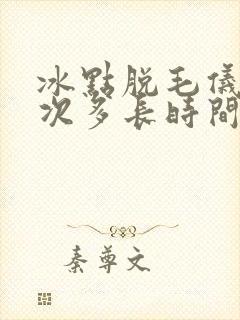 冰點脫毛儀
次多長時間
秦尊文